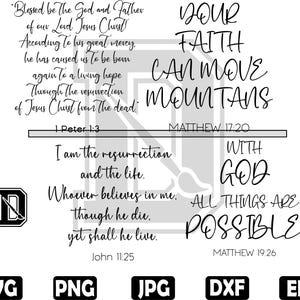 "Blessed be the God and Father
of our Lord Jesus Christ!
According to his great mercy,
he has caused us to be born
again to a living hope
Through the resurrection
of Jesus Christ from the dead,"
1 Peter 1:3
YOUR
FAITH
CAN MOVE
MOUNTANS
MATTHEW 17:20
I am the resurrection
and the life.
Whoever believes in me,
though he die,
yet shall he live.
John 11:25
WITH
GOD
ALL THINGS ARE
POSSIBLE
MATTHEW 19:26
PNG
JPG
DXF